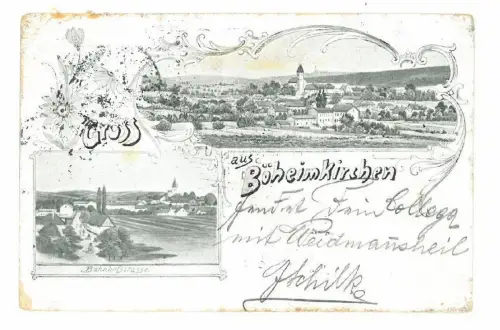 Gruss
aus
Böheimkirchen
Bahnhofstrasse
sendet Dein College
mit Weidmannsheil